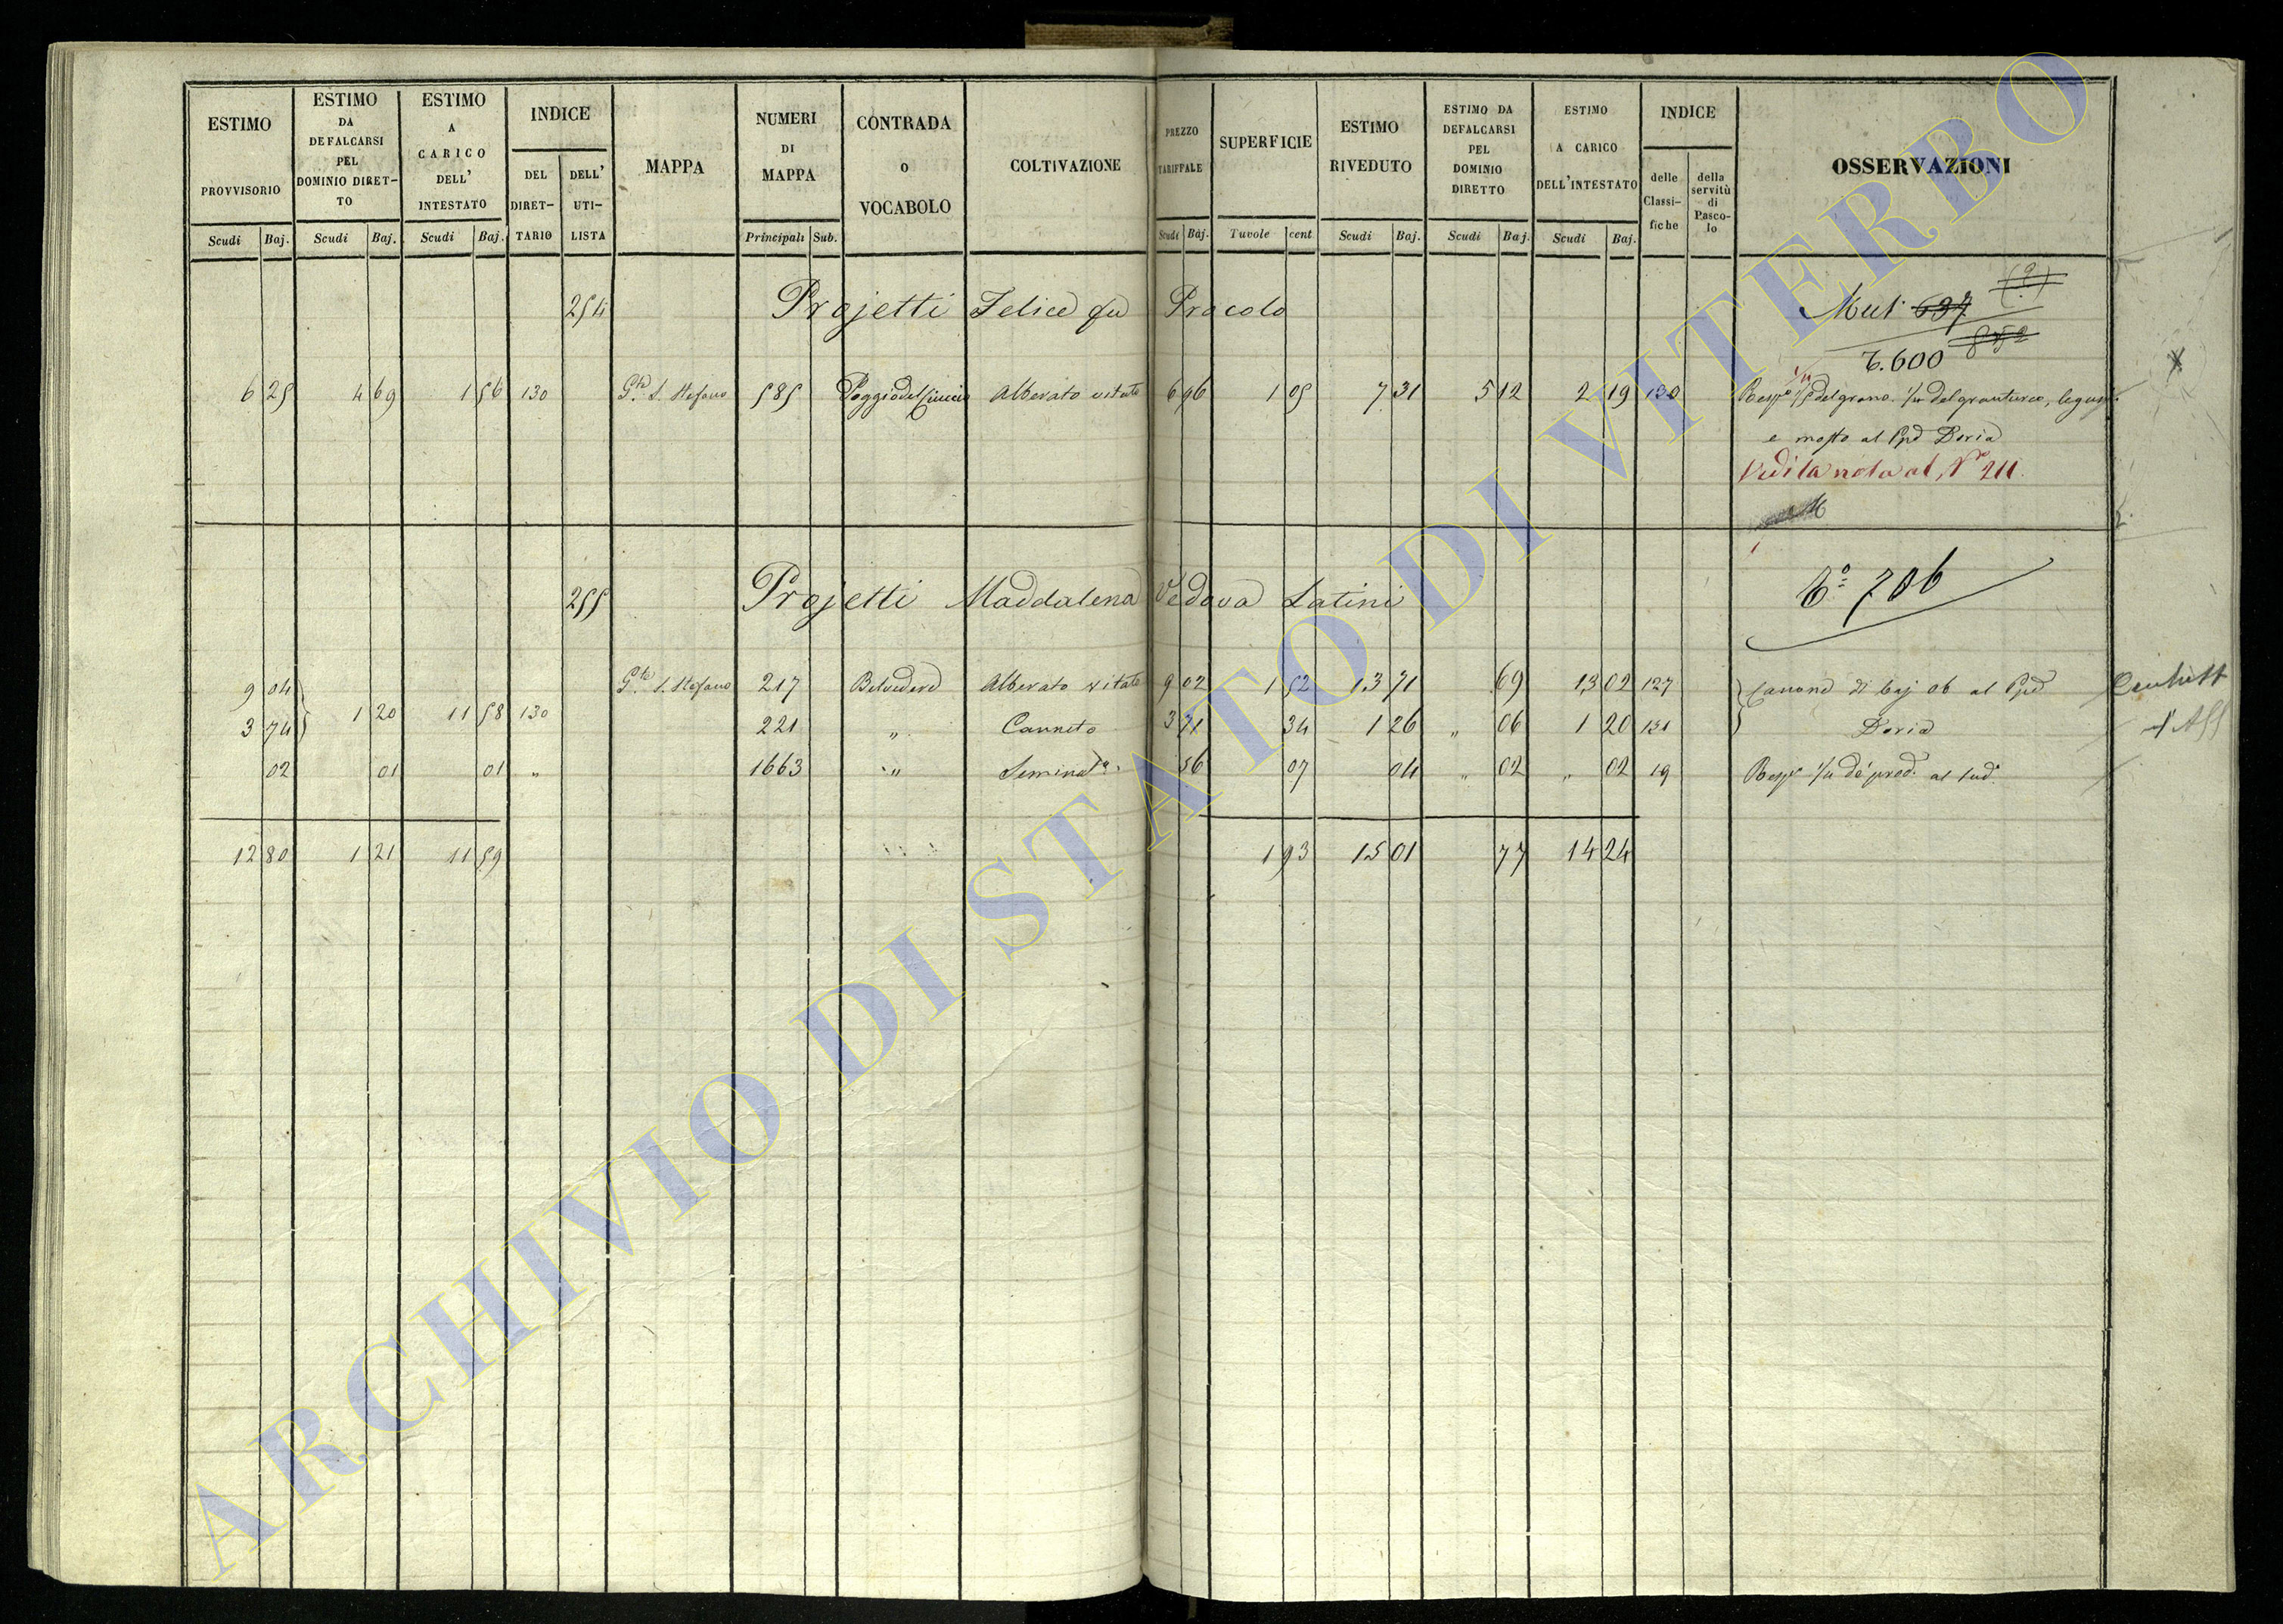 ESTIMO PROVVISORIO
ESTIMO DA DEFALCARSI PEL DOMINIO DIRET- TO
ESTIMO A CARICO DELL' INTESTATO
INDICE
DEL DIRET- TARIO
DELL' UTI- LISTA
MAPPA
NUMERI DI MAPPA
CONTRADA O VOCABOLO
COLTIVAZIONE
PREZZO TARIFFALE
SUPERFICIE
ESTIMO RIVEDUTO
ESTIMO DA DEFALCARSI PEL DOMINIO DIRETTO
ESTIMO A CARICO DELL'INTESTATO
INDICE
delle Classi- fiche
della servitù di Pasco- lo
OSSERVAZIONI
Scudi Baj. Scudi Baj. Scudi Baj. Principali Sub. Scudi Baj. Tavole cent Scudi Baj. Scudi Baj. Scudi Baj.
254 Projetti Felice fu Procolo Mut. 637
852
6.600
6 25 4 69 1 56 130 G.te S. Stefano 585 Alberato vitato 6 96 1 05 7 31 5 12 2 19 130 Resp.o 1/5 del grano. 1/4 del granturco, legumi
e mosto al Ppe Doria
Vedi la nota al N.o 211.
255 Projetti Maddalena Vedova Latini 706
9 04 G.te S. Stefano 217 Belvedere Alberato vitato 9 02 1 52 13 71 69 13 02 127 Canone di baj 06 al Ppe
3 74 1 20 11 58 130 221 " Canneto 3 71 34 1 26 " 06 1 20 131 Doria
02 01 01 " 1663 " Seminat.o 56 07 04 " 02 " 02 19 Resp.o 1/4 de' prod. al sud.o
12 80 1 21 11 59 1 93 15 01 77 14 24
ARCHIVIO DI STATO DI VITERBO